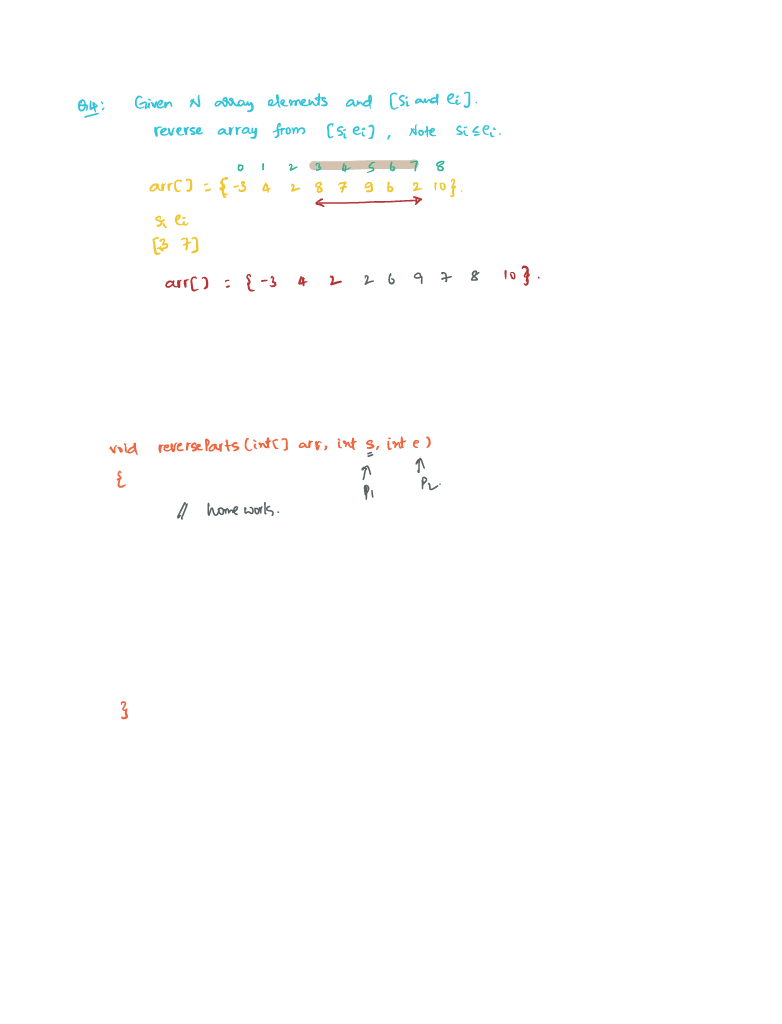 Q4: Given N array elements and [si and ei].
reverse array from [si ei], Note si≤ei.
0 1 2 3 4 5 6 7 8
arr[] = {-3 4 2 8 7 9 6 2 10}.
si ei
[3 7]
arr[] = {-3 4 2 2 6 9 7 8 10}.
void reverseParts(int[] arr, int s, int e)
{
P1 P2.
// home work.
}